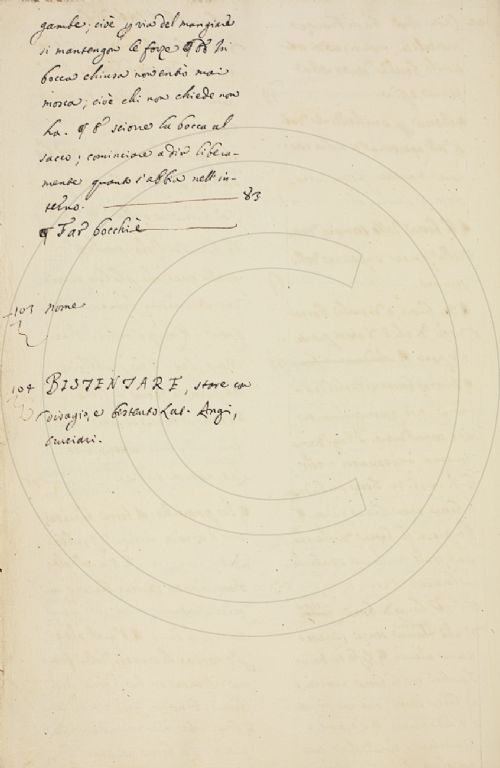 gambe; cioè p via del mangiare
si mantengon le forze ¶ In
bocca chiusa non entrò mai
mosca; cioè chi non chiede non
ha. ¶ sciorre la bocca al
sacco; cominciare a dir libera-
mente quanto s'abbia nell' in-
terno. 83
¶ Far bocchi
103 nome
104 BISTENTARE, stare con
disagio, e bistento Lat. Angi,
Cruciari.